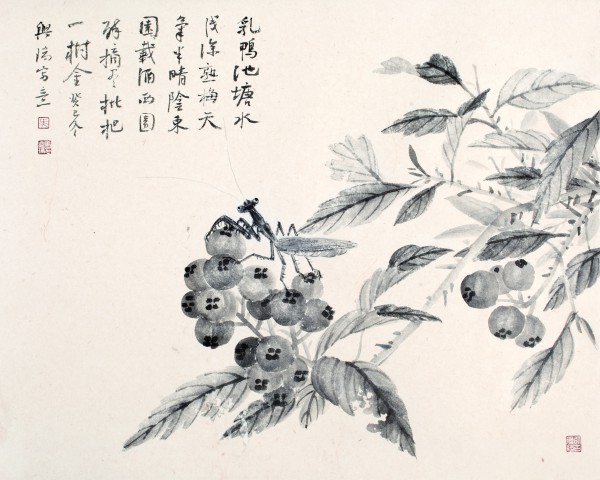 乳鴨池塘水
浅深熟梅天
氣半晴陰東
園載酒西園
醉摘尽枇杷
一樹金癸巳冬
興寫意